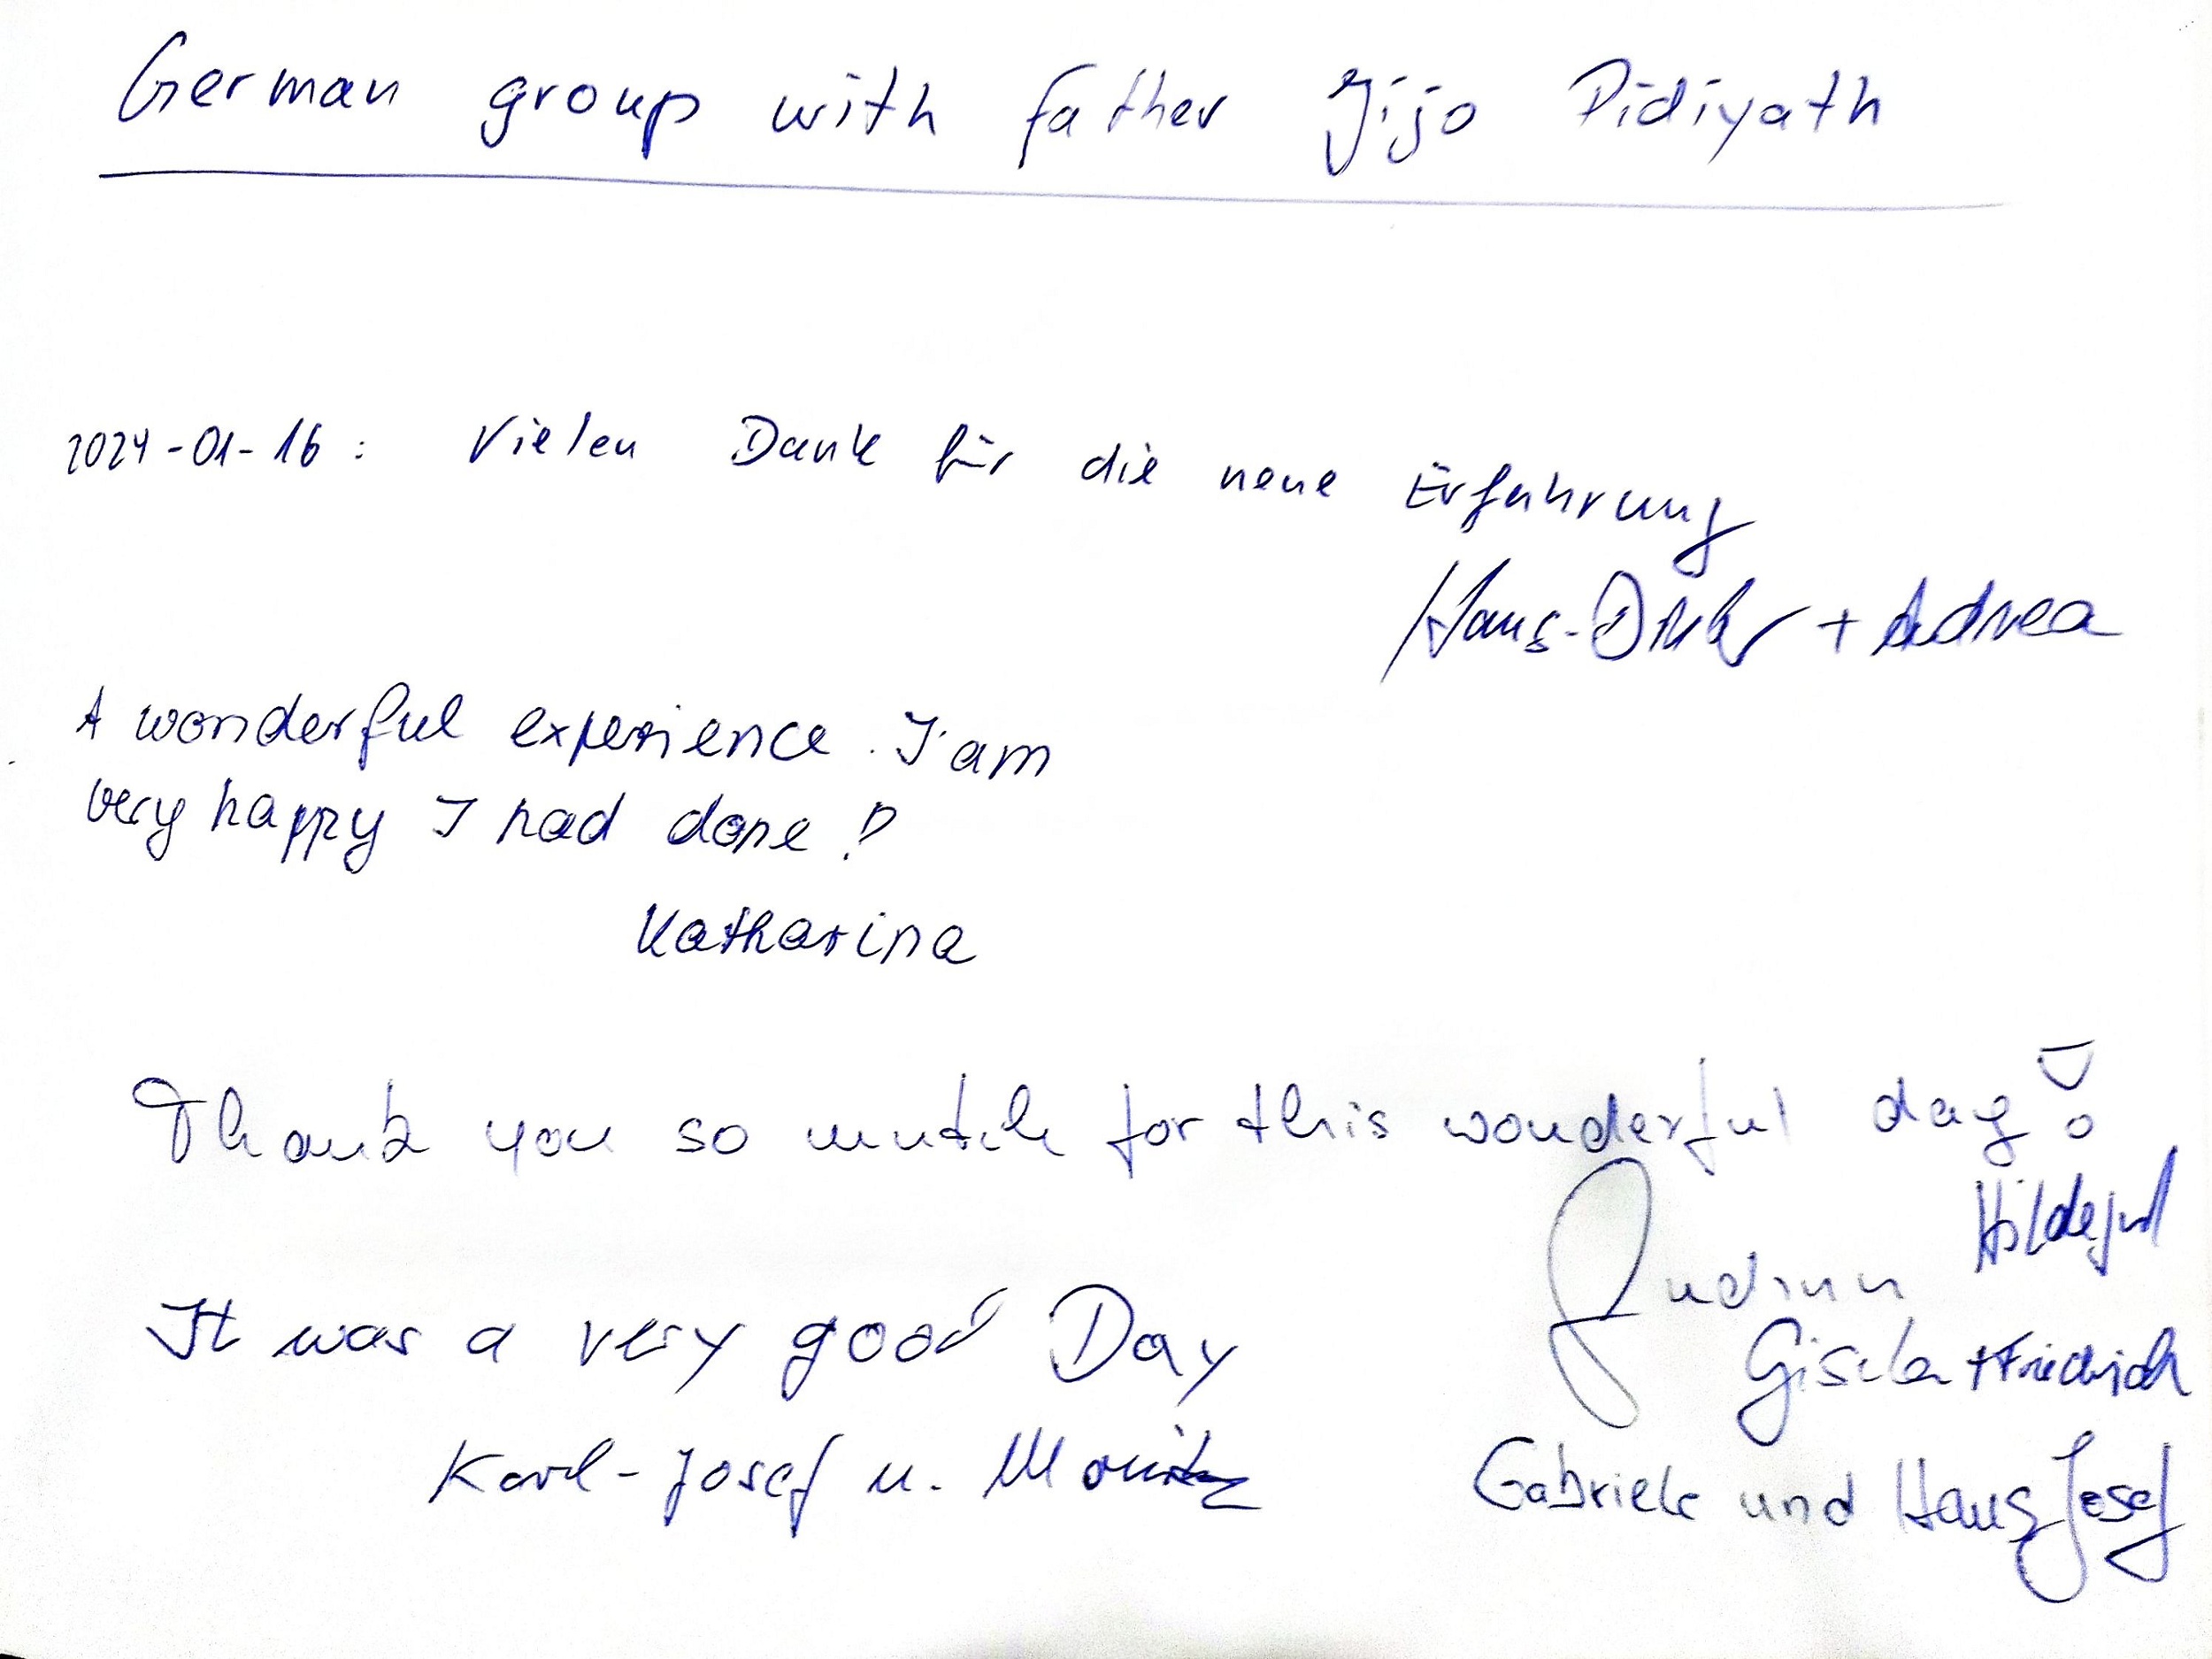 German group with father Jijo Pidiyath
2024-01-16: Vielen Dank für die neue Erfahrung
Hans-Dieter + Andrea
A wonderful experience. I'am
very happy I had done!
Katharina
Thank you so mutch for this wonderful day!
Hildegard
Gudrun
It was a very good Day
Gisela + Friedrich
Karl-Josef u. Moritz
Gabriele und Hans Josef